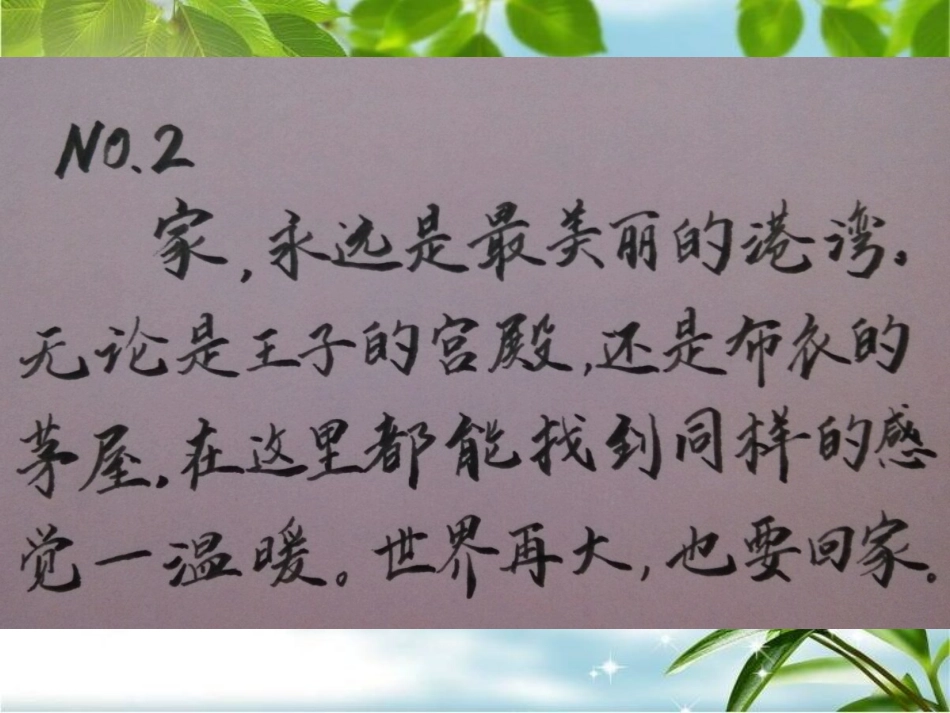 NO.2
家,永远是最美丽的港湾。
无论是王子的宫殿,还是布衣的
茅屋,在这里都能找到同样的感
觉一温暖。世界再大,也要回家。